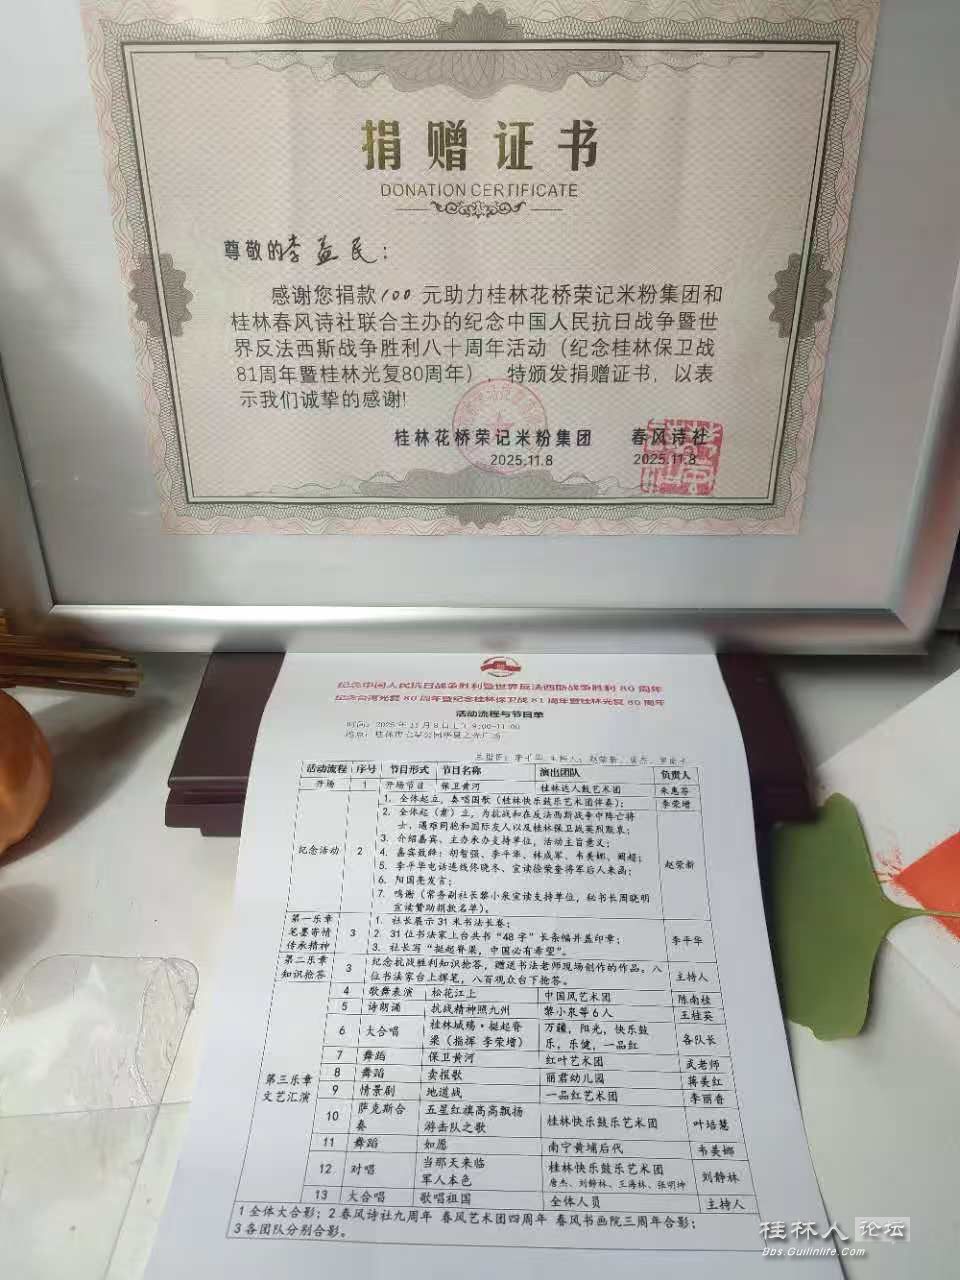 捐赠证书
DONATION CERTIFICATE
尊敬的李益民：
感谢您捐款100元助力桂林花桥荣记米粉集团和
桂林春风诗社联合主办的纪念中国人民抗日战争暨世
界反法西斯战争胜利八十周年活动（纪念桂林保卫战
81周年暨桂林光复80周年），特颁发捐赠证书，以表
示我们诚挚的感谢！
桂林花桥荣记米粉集团 春风诗社
2025.11.8 2025.11.8
纪念中国人民抗日战争胜利暨世界反法西斯战争胜利80周年
纪念台湾光复80周年暨纪念桂林保卫战81周年暨桂林光复80周年
活动流程与节目单
时间：2025年11月8日上午9:00-11:00
活动流程 序号 节目形式 节目名称 演出团队 负责人
开场 1 开场节目 保卫黄河 桂林达人鼓艺术团 朱惠芬
纪念活动 2
1. 全体起立，奏唱国歌（桂林快乐鼓乐艺术团伴奏）； 李荣增
2. 全体起（肃）立，为抗战和在反法西斯战争中阵亡将
士、遇难同胞和国际友人以及桂林保卫战英烈默哀；
3. 介绍嘉宾、主办承办支持单位，活动主旨意义；
4. 嘉宾致辞：胡智强、李平华、林成军、韦美娜、阙超；
5. 李平华电话连线佟晓冬、宣读徐荣奎将军后人来函；
6. 阳国亮发言；
7. 鸣谢（常务副社长黎小泉宣读支持单位，秘书长周晓明
宣读赞助捐款名单）。
赵荣新
第一乐章
笔墨寄情
传承精神
3
1. 社长展示31米书法长卷；
2. 31位书法家上台共书“48字”长条幅并盖印章；
3. 社长写“挺起脊梁，中国必有希望”。
李平华
第二乐章
知识抢答
3
纪念抗战胜利知识抢答，赠送书法老师现场创作的作品。八
位书法家台上挥笔，八百观众台下抢答。
主持人
第三乐章
文艺汇演
4 歌舞表演 松花江上 中国风艺术团 陈南桂
5 诗朗诵 抗战精神照九州 黎小泉等6人 王桂英
6 大合唱 桂林城殇·挺起脊
梁（指挥 李荣增） 万疆，阳光，快乐鼓
乐，乐健，一品红 各队长
7 舞蹈 保卫黄河 红叶艺术团 武老师
8 舞蹈 卖报歌 丽君幼儿园 蒋美红
9 情景剧 地道战 一品红艺术团 李丽香
10 萨克斯合
奏 五星红旗高高飘扬
游击队之歌 桂林快乐鼓乐艺术团 叶培慧
11 舞蹈 如愿 南宁黄埔后代 韦美娜
12 对唱 当那天来临
军人本色 桂林快乐鼓乐艺术团
唐杰、刘静林、王海林、张明坤 刘静林
13 大合唱 歌唱祖国 全体人员 主持人
1 全体大合影；2 春风诗社九周年 春风艺术团四周年 春风书画院三周年合影；
3 各团队分别合影。
桂林人论坛
Bbs.Guilinlife.Com